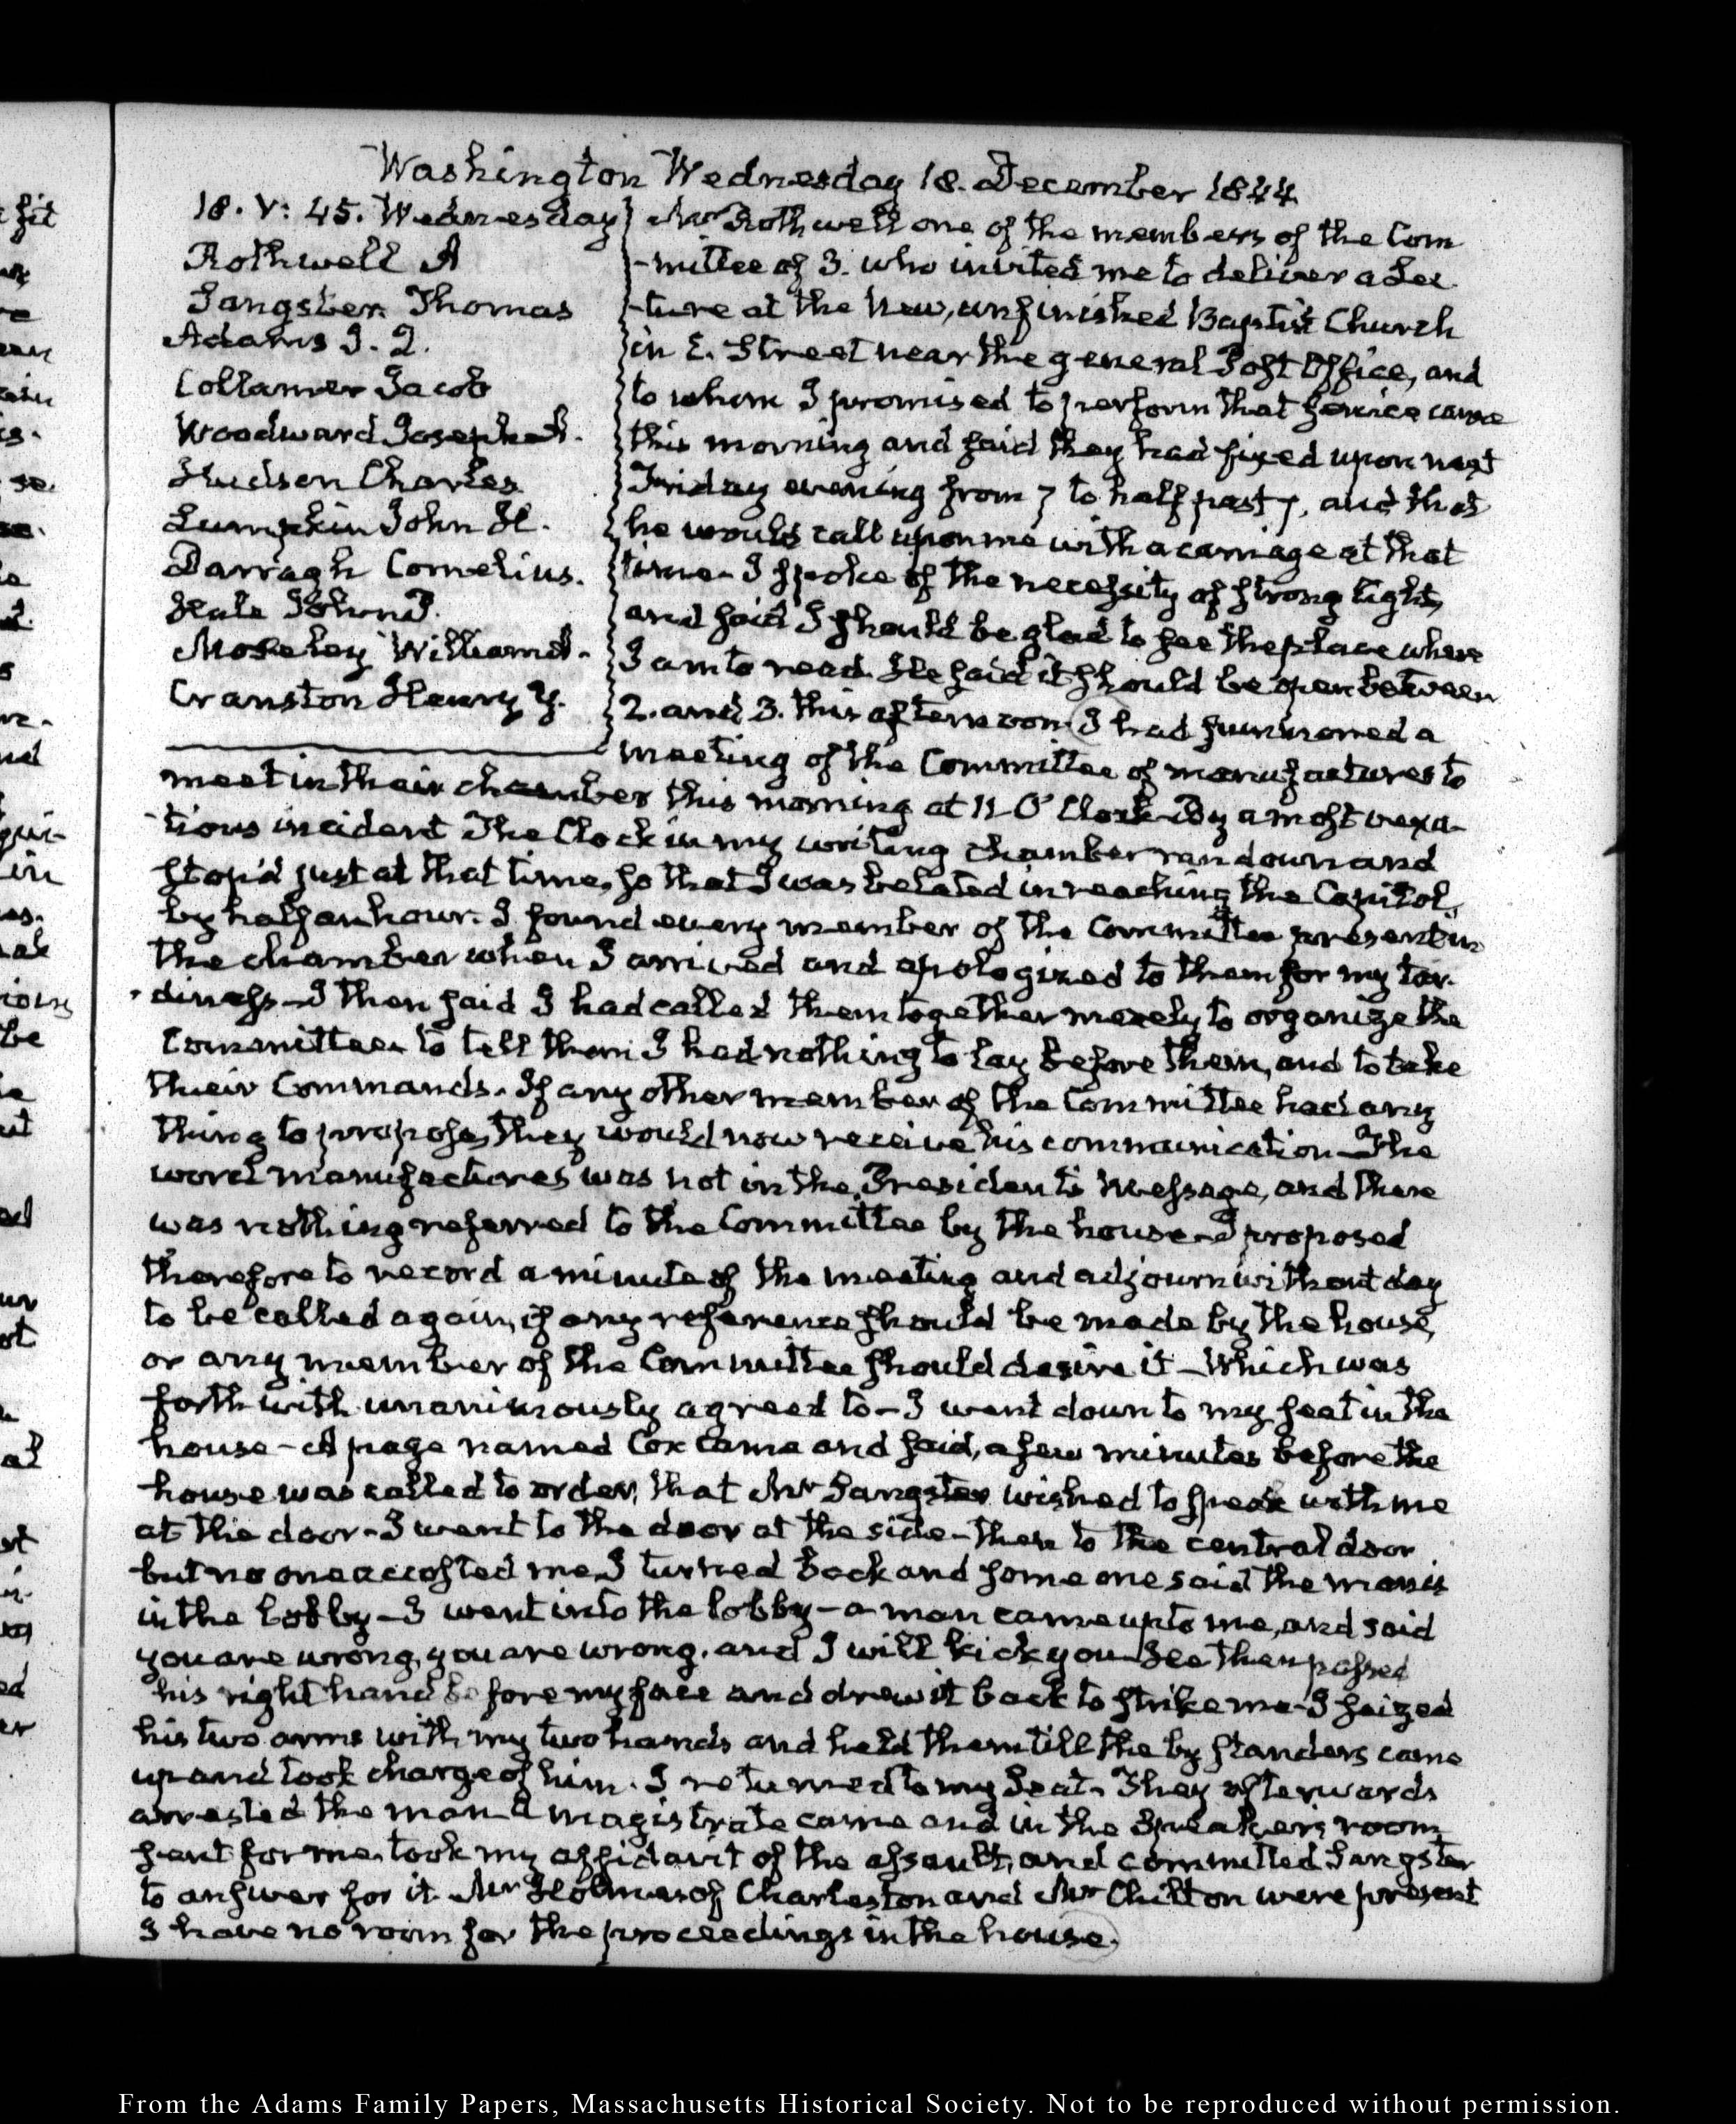 Washington Wednesday 18. December 1844
18. V: 45. Wednesday
Rothwell A
Sangster Thomas
Adams J. Q.
Collamer Jacob
Woodward Joseph A.
Hudson Charles
Lumpkin John H.
Darragh Cornelius.
Hale John P.
Moseley William A.
Cranston Henry Y.
Mr Rothwell one of the members of the Com
-mittee of 3. who invited me to deliver a Lec
-ture at the New, unfinished Baptist Church
in E. Street near the general Post Office, and
to whom I promised to perform that service came
this morning and said they had fixed upon next
Friday evening from 7 to half past 7, and that
he would call upon me with a carriage at that
time- I spoke of the necessity of strong light,
and said I should be glad to see the place where
I am to read. He said it should be open between
2. and 3. this afternoon I had summoned a
meeting of the Committee of manufactures to
meet in their chamber this morning at 11 O'Clock- By a most vexa-
tious incident The Clock in my writing chamber ran down and
stop'd just at that time, so that I was belated in reaching the Capitol,
by half an hour. I found every member of the Committee present in
the chamber when I arrived and apologized to them for my tar-
diness- I then said I had called them together merely to organize the
Committee to tell them I had nothing to lay before them, and to take
their Commands. If any other member of the Committee had any
thing to propose, they would now receive his communication- The
word manufactures was not in the President's Message, and there
was nothing referred to the Committee by the house- I proposed
therefore to record a minute of the meeting and adjourn without day
to be called again, if any reference should be made by the house,
or any member of the Committee should desire it- Which was
forthwith unanimously agreed to- I went down to my seat in the
house- A page named Cox came and said, a few minutes before the
house was called to order, that Mr Sangster wished to speak with me
at the door- I went to the door at the side- then to the central door
but no one accosted me I turned back and some one said the man is
in the lobby- I went into the lobby- a man came up to me, and said
you are wrong, you are wrong. and I will kick you- He then passed
his right hand before my face and drew it back to strike me- I seized
his two arms with my two hands and held them till the by standers came
up and took charge of him. I returned to my Seat. They afterwards
arrested the man- A magistrate came and in the Speaker's room
sent for me, took my affidavit of the assault, and committed Sangster
to answer for it. Mr Holmes of Charleston and Mr Chilton were present
I have no room for the proceedings in the house.
From the Adams Family Papers, Massachusetts Historical Society. Not to be reproduced without permission.